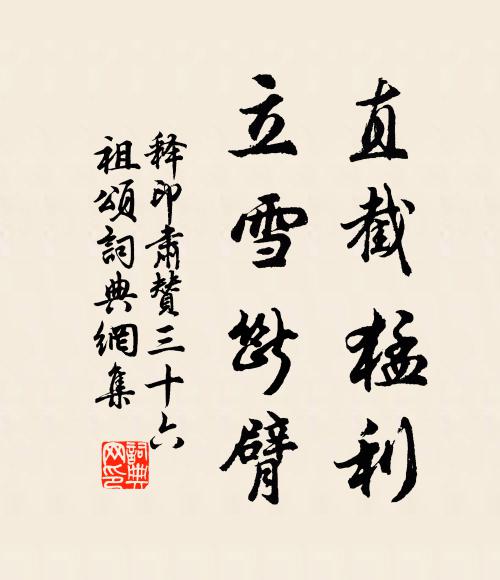 直截猛利
立雪斷臂
釋印肅贊三十六
祖頌詞典網集
詞典
网印